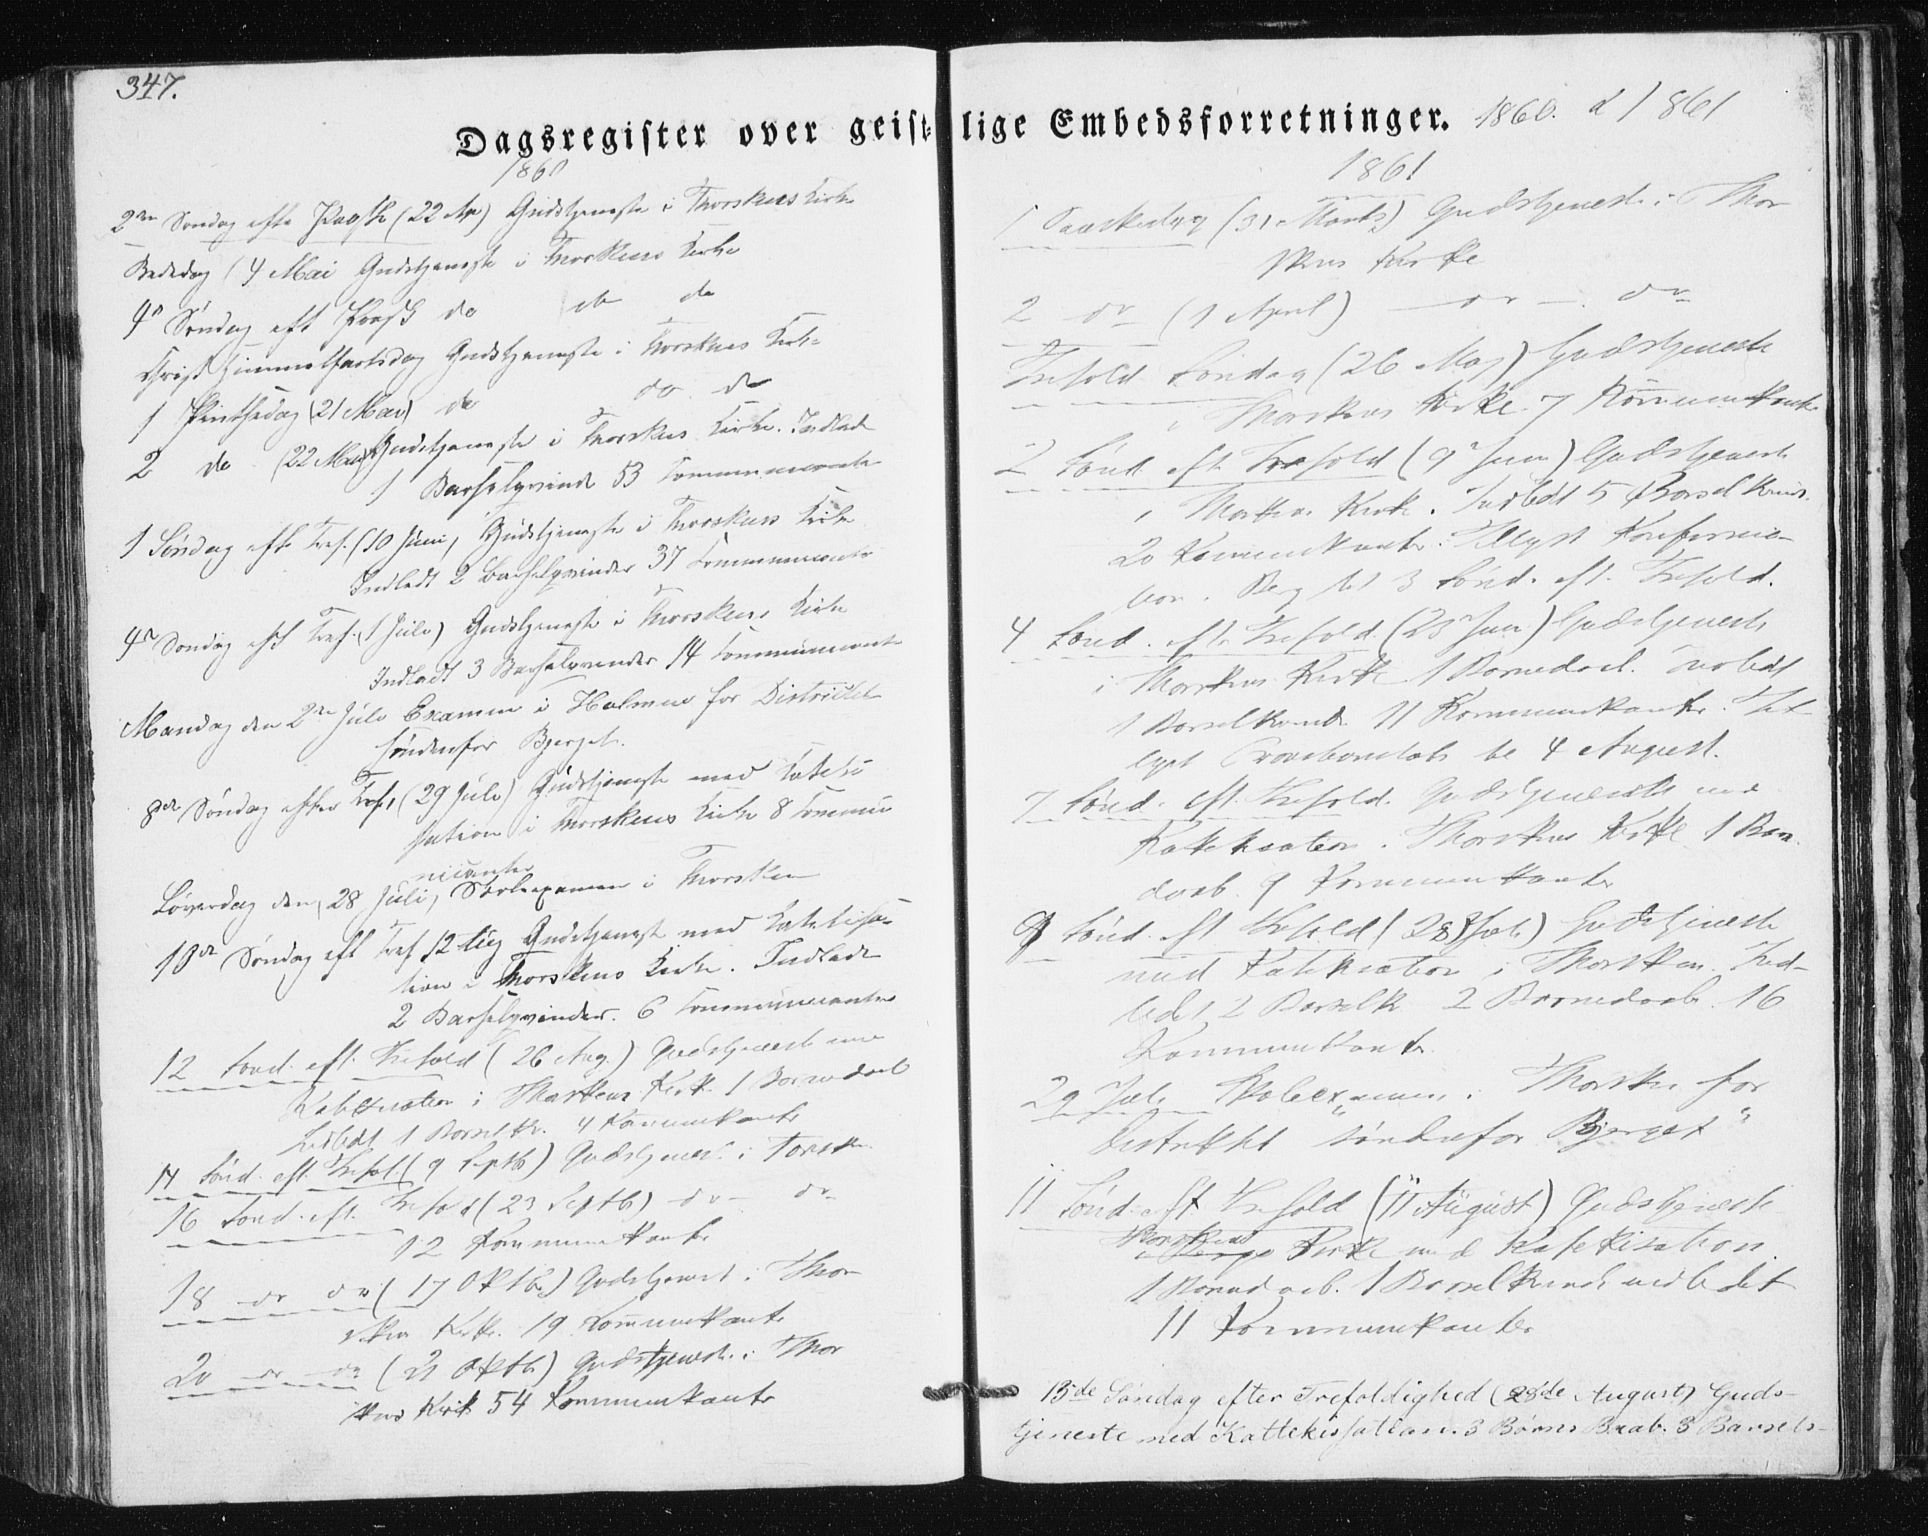 347.
Dagsregister over geistlige Embedsforretninger. 1860. & 1861
1860
2den Søndag efter Paaske (22 Apr) Gudstjeneste i Thorskens Kirke
Bededag (4 Mai Gudstjeneste i Thorskens Kirke
4de Søndag eft Paask do do do
Christi Himmelfartsdag Gudstjeneste i Thorskens Kirke
1 Pintsedag (21 Mai) do do do
2 do (22 Mai) Gudstjeneste i Thorskens Kirke. Indledt
1 Barselqvinde 53 Communicanter
1 Søndag efter Tref. (10 Juni) Gudstjeneste i Thorskens Kirke
Indledt 2 Barselqvinder 37 Communicanter
4de Søndag eft Tref. (1 Juli) Gudstjeneste i Thorskens Kirke
Indledt 3 Barselqvinder 14 Communicanter
Mandag den 2den Juli Examen i Holmen for Districtet
søndenfor Bjerget.
8de Søndag efter Tref. (29 Juli) Gudstjeneste med Kateki
sation i Thorskens Kirke 8 Commu
nicanter
Løverdag den 28 Juli, Skoleexamen i Thorsken
10de Søndag eft Tref 12 Aug Gudstjenest med Katekisa
tion i Thorskens Kirke. Indledt
2 Barselqvinder. 6 Communicanter
12 Sønd. eft. Trefold (26 Aug.) Gudstjeneste med
Katekisation i Thorskens Kirk. 1 Barnedaab
Indledt 1 Barselkv. 4 Kommunikanter
14 Sønd. eft. Trefol. (9 Septb) Gudstjenest. i Torsken
16 Sønd. eft. Trefold (23 Septb) do do
12 Kommunikanter
18 do do (17 Oktb) Gudstjenest i Thor
sken Kirke. 19 Kommunikanter
20 do do (21 Oktb) Gudstjenest. i Thor
skens Kirk 54 Kommunikanter
1861
1 Paaskedag (31 Marts) Gudstjeneste i Thor
skens Kirke
2 do (1 April) do do
Trefold. Søndag (26 Maj) Gudstjeneste
i Thorskens Kirke 7 Kommunikanter
2 Sønd. eft. Trefold (9 Juni) Gudstjeneste
i Thorskens Kirke. Indledt 5 Barselkvind.
20 Kommunikanter. Tillyst Konfirma-
tion. Berg til 3 Sønd. eft. Trefold.
4 Sønd. eft. Trefold. (23 Juni) Gudstjeneste
i Thorskens Kirke 1 Barnedaab. Indledt
1 Barselkvinde 11 Kommunikanter. Til-
lyst til 4 August.
7 Sønd. eft. Trefold. Gudstjeneste med
Katekisation. Thorskens Kirke 1 Barne
daab. 9 Kommunikanter
9 Sønd. eft Trefold (28 Juli) Gudstjeneste
med Katekisation i Thorsken. Ind-
ledt 2 Barselk 2 Barnedaab. 16
Kommunikanter.
29 Juli Skoleexamen i Thorsken for
Distriktet søndenfor Bjerget"
11 Sønd. eft Trefold (11 August) Gudstjeneste
Thorskens Kirke med Katekisation.
1 Barnedaab. 1 Barselkvinde indledet
11 Kommunikanter
13de Søndag efter Trefoldighed (28de August) Guds-
tjeneste med Kattekisation. 3 Børns Daab. 3 Barsels-